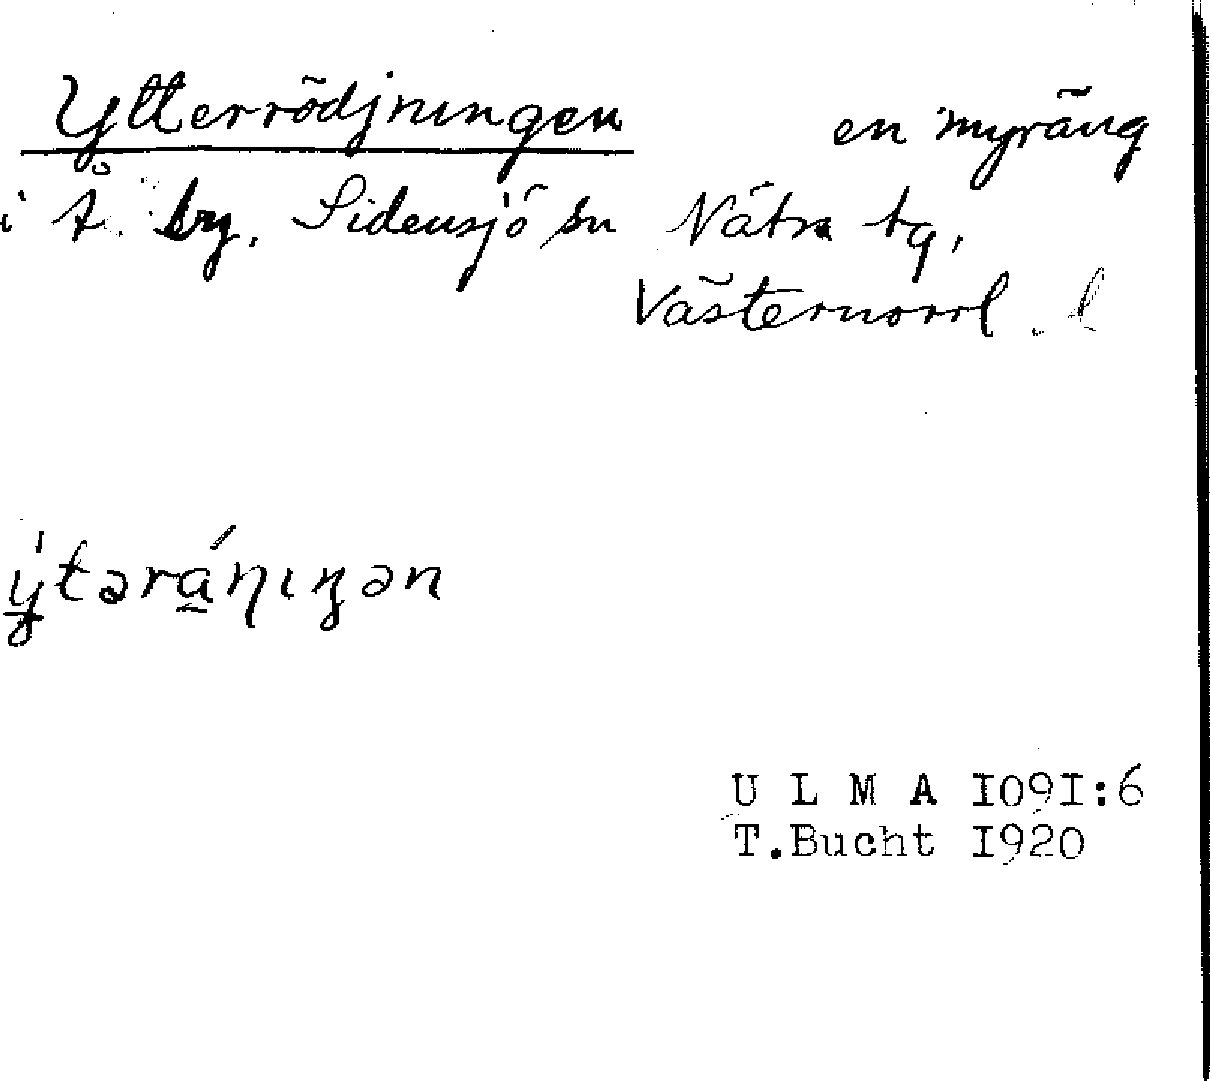 Ytterrödjningen en myräng
i Å. by, Sidensjö sn Nätra tg,
Västernorrl. l
ýtəráṇıŋən
U L M A I09I:6
T.Bucht I920